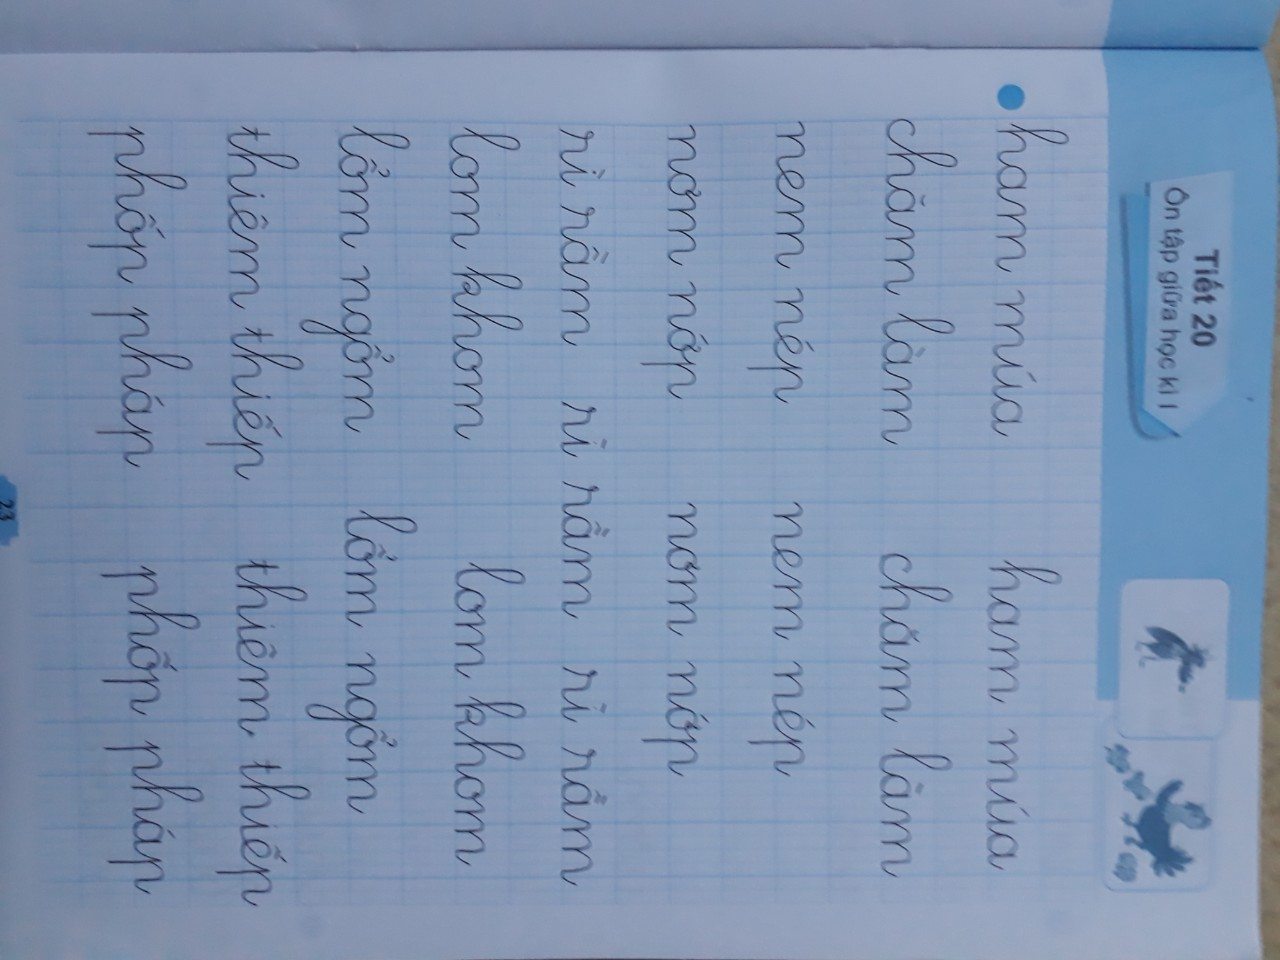 Tiết 20
Ôn tập giữa học kì I
ham múa ham múa
chăm làm chăm làm
nem nép nem nép
nơm nớp nơm nớp
rì rầm rì rầm rì rầm
lom khom lom khom
lổm ngổm lổm ngổm
thiêm thiếp thiêm thiếp
phốp pháp phốp pháp
23